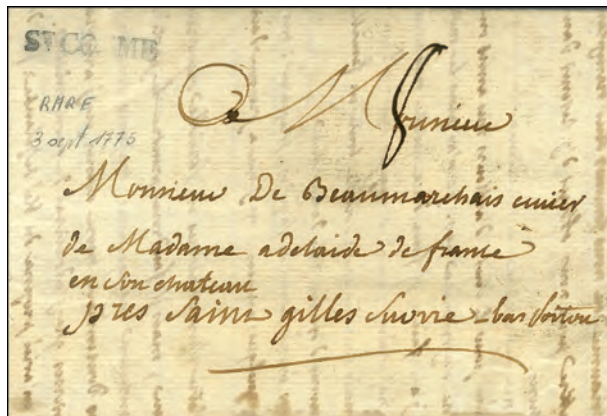 ST CO ME
RARE
3 sept 1775
a Monsieur
Monsieur De Beaumarchais
de Madame adelaide de france
en son chateau
pres Saint gilles Survie - bas poitou